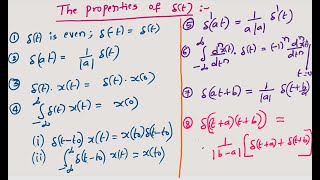 The properties of δ(t) :-
① δ(t) is even; δ(-t) = δ(t)
② δ(at) = 1/|a| δ(t)
③ δ(t). x(t) = δ(t). x(0)
④ ∫_{-∞}^{∞} δ(t) x(t) = x(0)
(i) δ(t-t0) x(t) = x(t0) δ(t-t0)
(ii) ∫_{-∞}^{∞} δ(t-t0) x(t) = x(t0)
⑤ δ'(at) = 1/|a| δ'(t)
⑥ ∫_{-∞}^{∞} dⁿx(t)/dtⁿ δ(t) = (-1)ⁿ dⁿx(t)/dtⁿ |t=0
⑦ δ(at+b) = 1/|a| δ(t+b/a)
⑧ δ((t+a)(t+b)) =
1/|b-a| [δ(t+a) + δ(t+b)]